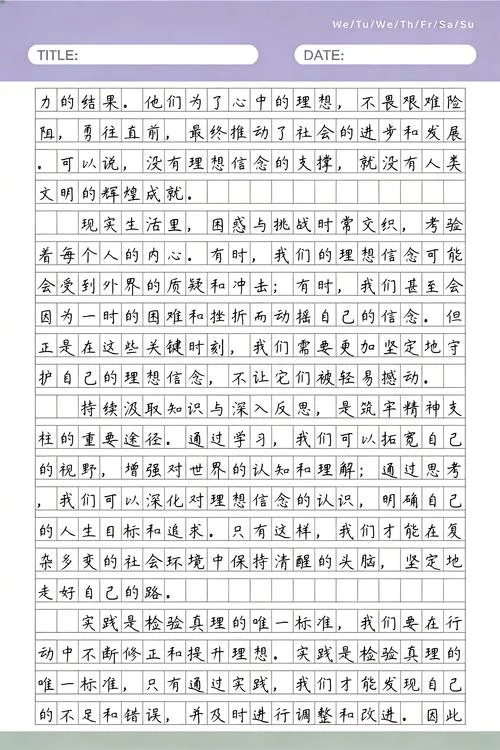 We/Tu/We/Th/Fr/Sa/Su
TITLE: DATE:
力的结果。他们为了心中的理想，不畏艰难险
阻，勇往直前，最终推动了社会的进步和发展
。可以说，没有理想信念的支撑，就没有人类
文明的辉煌成就。
现实生活里，困惑与挑战时常交织，考验
着每个人的内心。有时，我们的理想信念可能
会受到外界的质疑和冲击；有时，我们甚至会
因为一时的困难和挫折而动摇自己的信念。但
正是在这些关键时刻，我们需要更加坚定地守
护自己的理想信念，不让它们被轻易撼动。
持续汲取知识与深入反思，是筑牢精神支
柱的重要途径。通过学习，我们可以拓宽自己
的视野，增强对世界的认知和理解；通过思考
，我们可以深化对理想信念的认识，明确自己
的人生目标和追求。只有这样，我们才能在复
杂多变的社会环境中保持清醒的头脑，坚定地
走好自己的路。
实践是检验真理的唯一标准，我们要在行
动中不断修正和提升理想。实践是检验真理的
唯一标准，只有通过实践，我们才能发现自己
的不足和错误，并及时进行调整和改进。因此